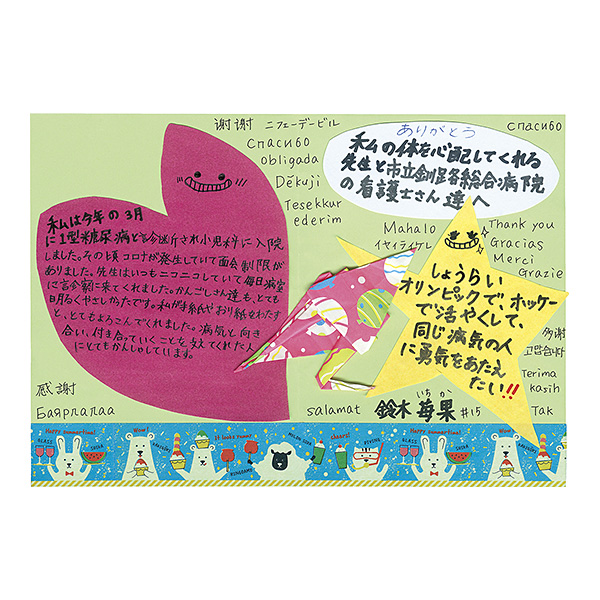 谢谢 ニフェーデービル
Спасибо
obligada
Děkuji
Tesekkur
ederim
ありがとう
私の体を心配してくれる
先生と市立釧路総合病院
の看護士さん達へ
Спасибо
私は今年の3月
に1型糖尿病と診断され小児科に入院
しました。その頃コロナが発生していて面会制限が
ありました。先生はいつもニコニコしていて毎日病室
に診察に来てくれました。かんごしさん達も、とても
明るくやさしかたです。私が手紙やおり紙をわたす
と、とてもよろこんでくれました。病気と向き
合い、付き合っていくことを支えてくれた人
にとてもかんしゃしています。
Mahalo
イヤイライケレ
Thank you
Gracias
Merci
Grazie
しょうらい
オリンピックで、ホッケー
で活やくして、
同じ病気の人
に勇気をあたえ
たい!!
多谢
고맙습니다
Terima
kasih
Tak
感謝
Баярлалаа
salamat
鈴木 苺果 #15
いちか
Happy summertime!
GLASS
SUIKA
Wow!
KAKIGORI
It looks yummy!
RINGOAME
MELON SODA
cheers!
Happy summertime!
GLASS
SUIKA
Wow!
KAKIGORI